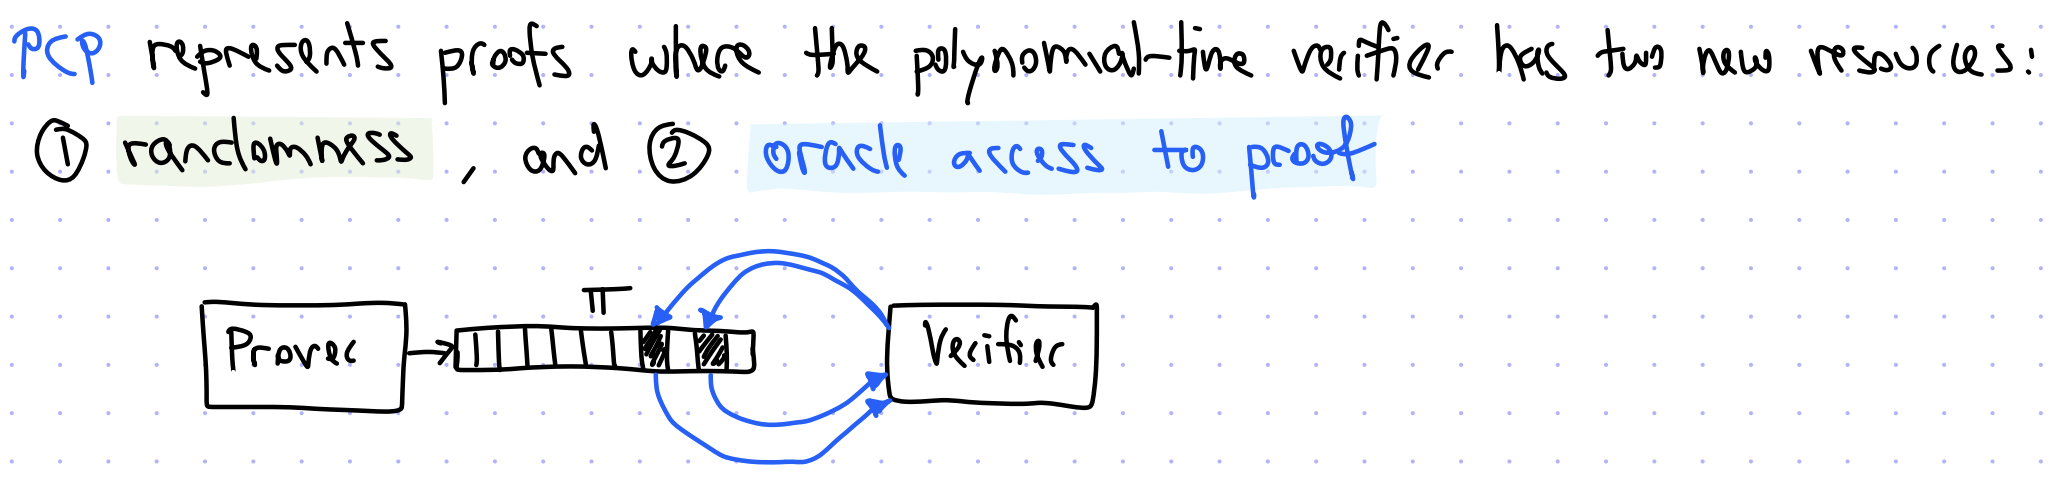 PCP represents proofs where the polynomial-time verifier has two new resources:
① randomness, and ② oracle access to proof
π
Prover
Verifier